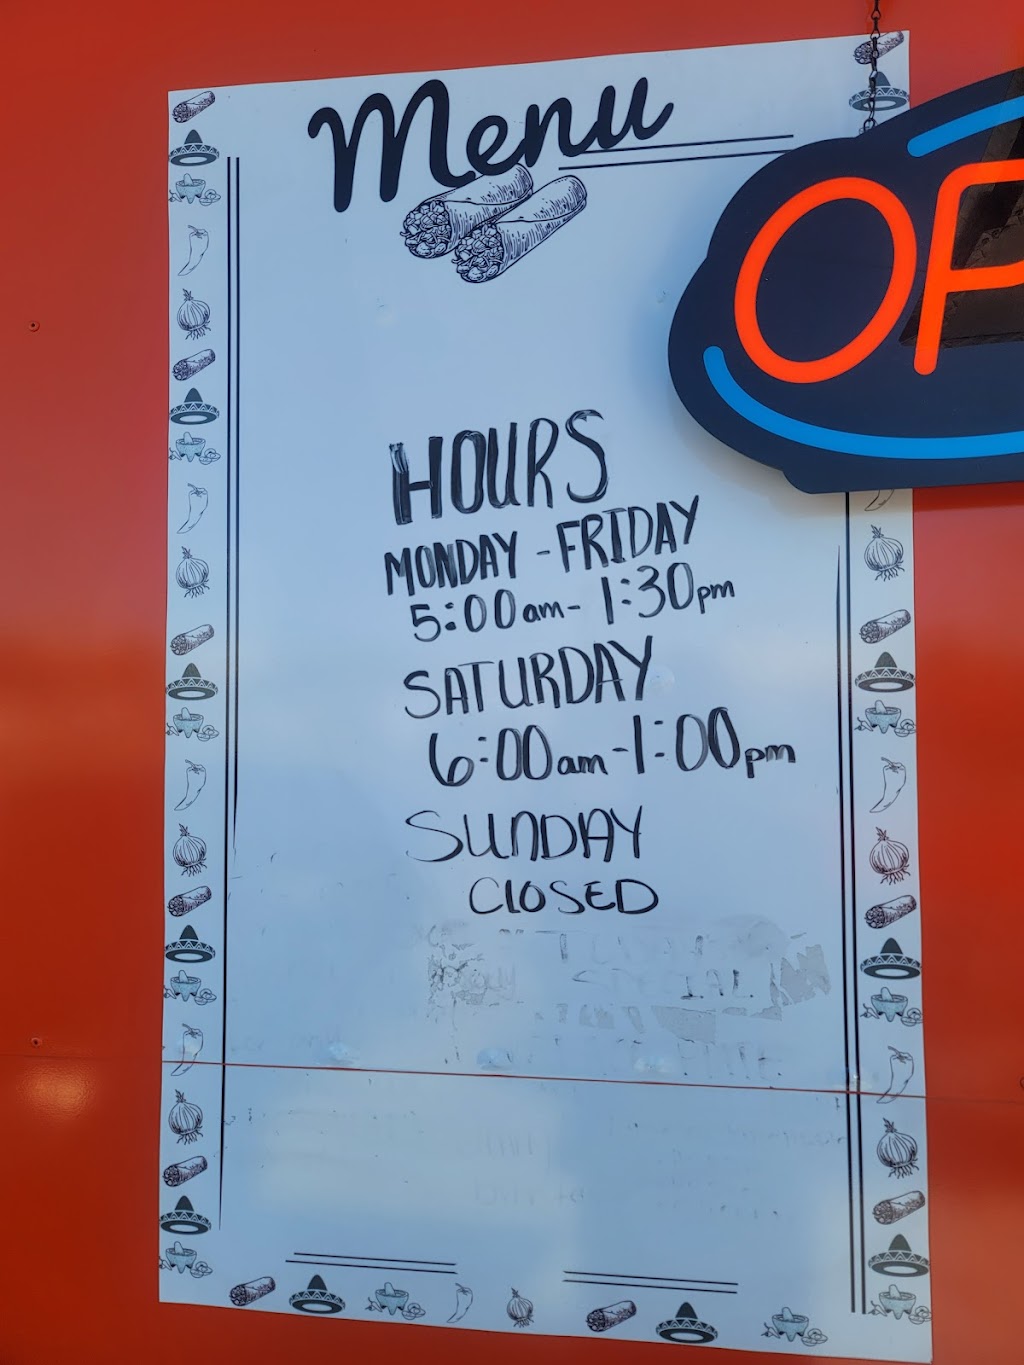 Menu
OP
HOURS
MONDAY - FRIDAY
5:00am - 1:30pm
SATURDAY
6:00am - 1:00pm
SUNDAY
CLOSED